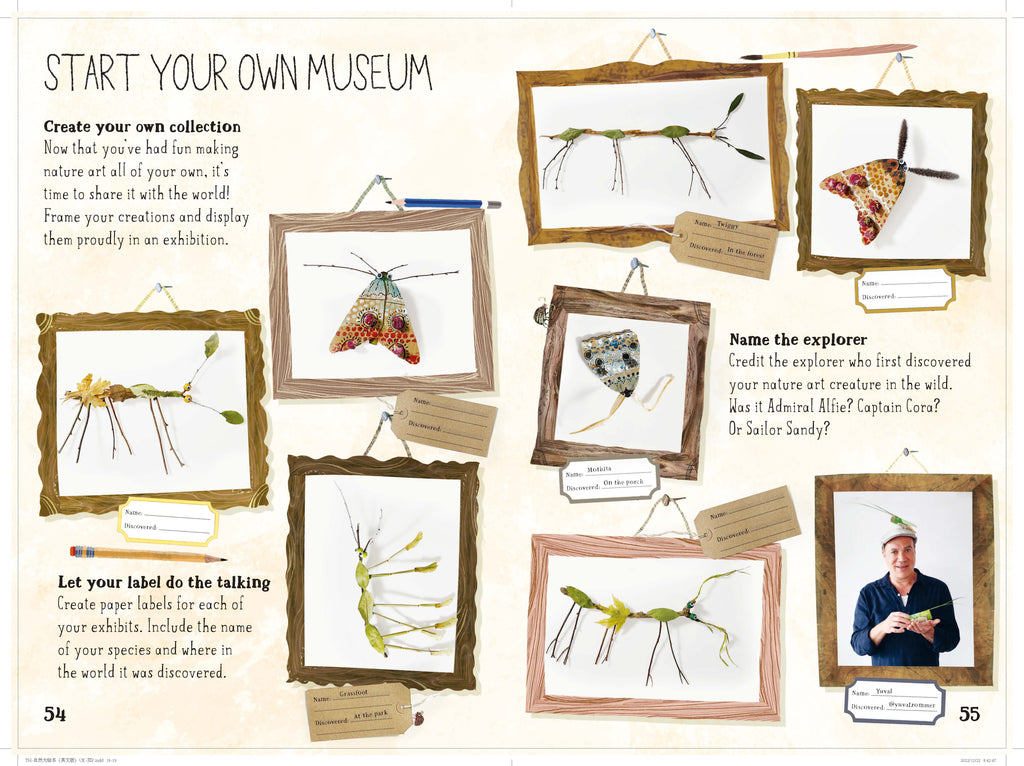 START YOUR OWN MUSEUM
Create your own collection
Now that you've had fun making
nature art all of your own, it's
time to share it with the world!
Frame your creations and display
them proudly in an exhibition.
Name: Twiggy
Discovered: In the forest
Name:
Discovered:
Name:
Discovered:
Name the explorer
Credit the explorer who first discovered
your nature art creature in the wild.
Was it Admiral Alfie? Captain Cora?
Or Sailor Sandy?
Name: Mothita
Discovered: On the porch
Name:
Discovered:
Name:
Discovered:
Let your label do the talking
Create paper labels for each of
your exhibits. Include the name
of your species and where in
the world it was discovered.
Name: Grassfoot
Discovered: At the park
Name: Yuval
Discovered: @yuvalzommer
54
55